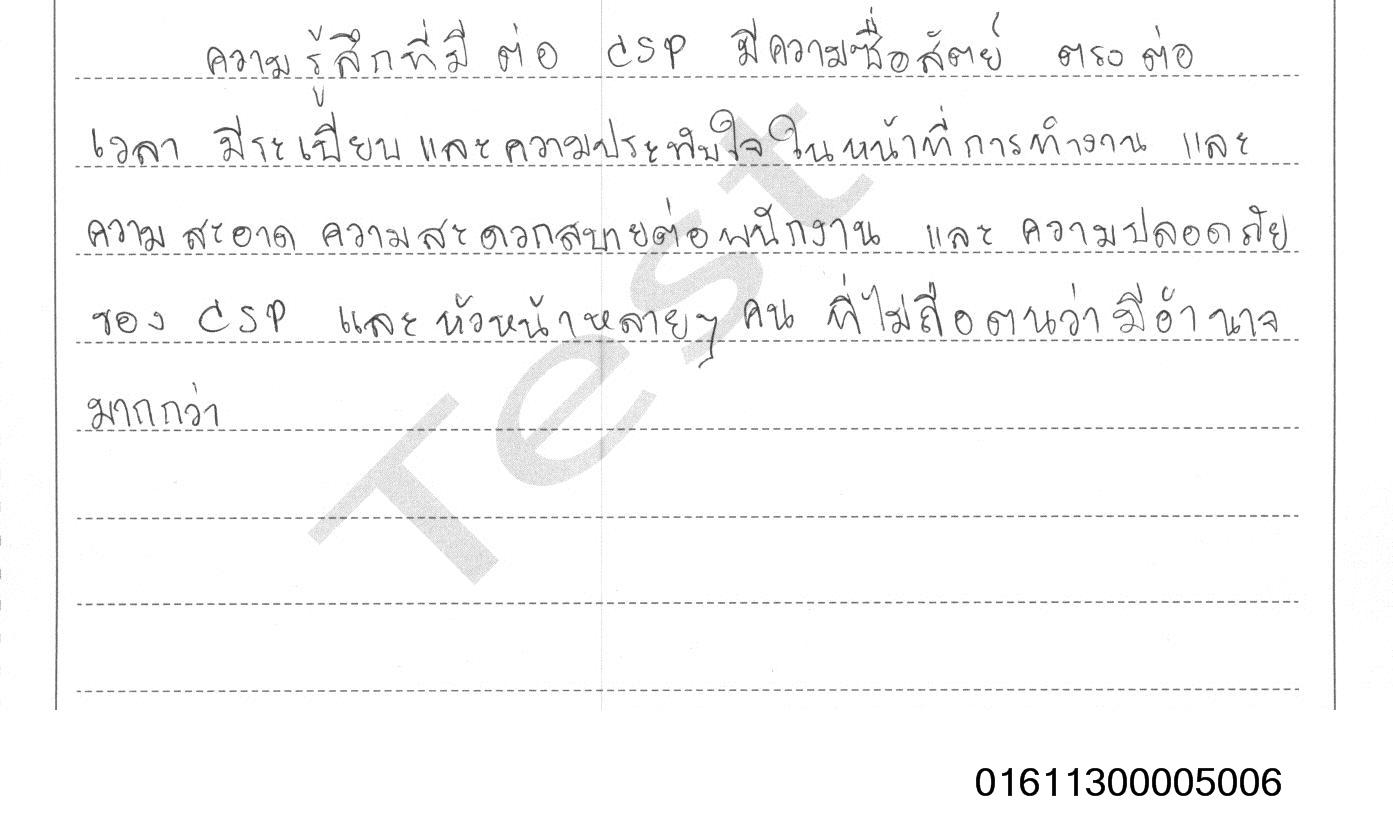 ความรู้สึกที่มี ต่อ CSP มีความซื่อสัตย์ ตรงต่อ
เวลา มีระเบียบ และความประทับใจ ในหน้าที่การทำงาน และ
ความสะอาด ความสะดวกสบายต่อพนักงาน และ ความปลอดภัย
ของ CSP และหัวหน้าหลายๆ คน ที่ไม่ถือตนว่ามีอำนาจ
มากกว่า
Test
01611300005006